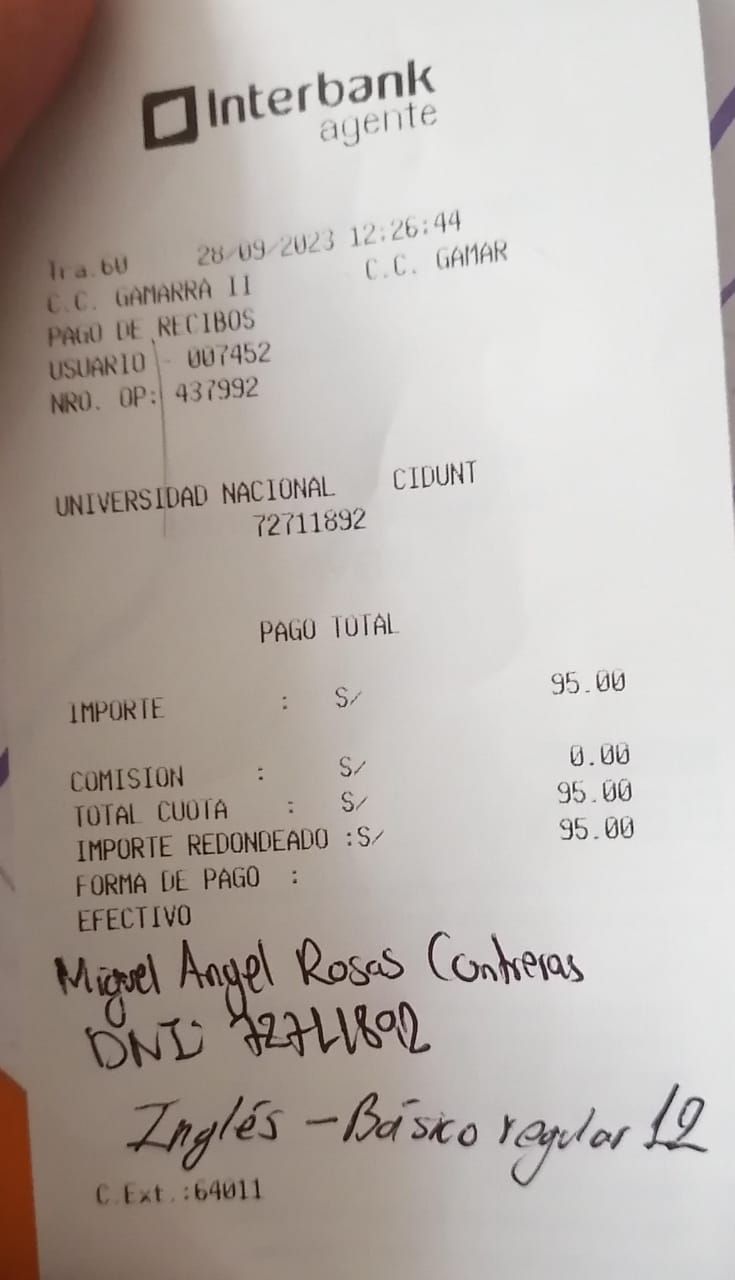 Interbank
agente
Tra.60 28/09/2023 12:26:44
C.C. GAMARRA II C.C. GAMAR
PAGO DE RECIBOS
USUARIO - 007452
NRO. OP: 437992
UNIVERSIDAD NACIONAL CIDUNT
72711892
PAGO TOTAL
IMPORTE : S/ 95.00
COMISION : S/ 0.00
TOTAL CUOTA : S/ 95.00
IMPORTE REDONDEADO :S/ 95.00
FORMA DE PAGO :
EFECTIVO
Miguel Angel Rosas Contreras
DNI: 72711892
Inglés - Básico regular 12
C.Ext.:64011